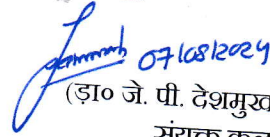 07/08/2024
(ड़ा० जे. पी. देशमुख
संयुक्त